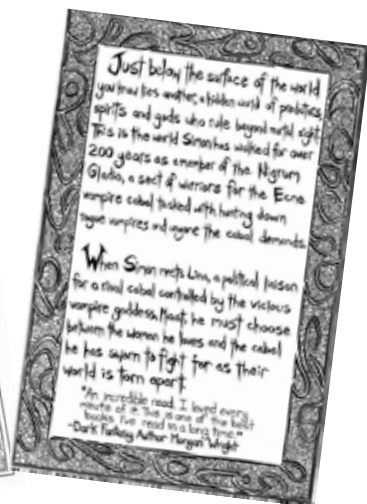 Just below the surface of the world
you know lies another, a hidden world of
spirits and gods who rule beyond mortal sight.
This is the world Simon has walked for over
200 years as a member of the Nigrum
Gladio, a sect of warriors for the
vampire cabal tasked with hunting down
rogue vampires and anyone the cabal demands.
When Simon meets Lina, a political liaison
for a rival cabal controlled by the vicious
vampire goddess, he must choose
between the woman he loves and the cabal
he has sworn to fight for as their
world is torn apart.
"An incredible read. I loved every
minute of it. This is one of the best
books I've read in a long time."
-Dark Fantasy Author Morgan Wright